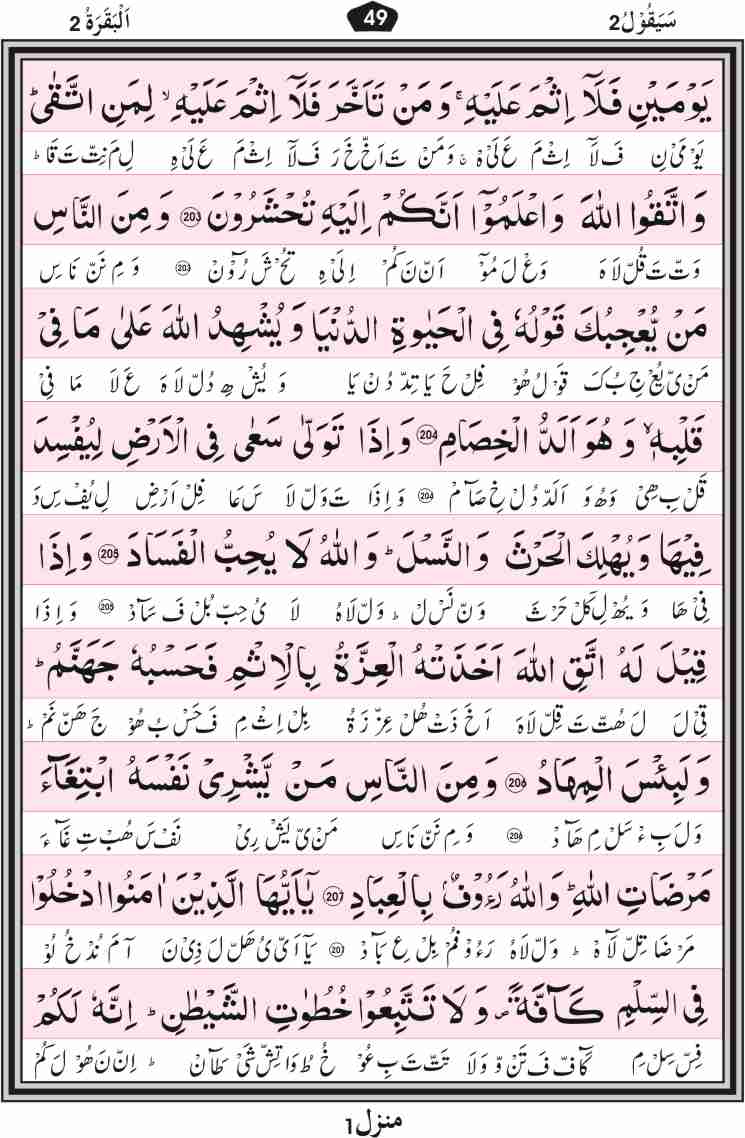 سَيَقُوۡلُ 2
49
اَلۡبَقَرَةُ 2
يَوۡمَيۡنِ فَلَاۤ اِثۡمَ عَلَيۡهِ ۚ وَ مَنۡ تَاَخَّرَ فَلَاۤ اِثۡمَ عَلَيۡهِ ۙ لِمَنِ اتَّقٰى ؕ
يَوۡ مَىۡ نِ فَ لَاۤ اِثۡ مَ عَ لَىۡ هِ ۚ وَ مَنۡ تَ اَخۡ خَ رَ فَ لَاۤ اِثۡ مَ عَ لَىۡ هِ لِ مَ نِتۡ تَ قَا ؕ
وَ اتَّقُوا اللّٰهَ وَاعۡلَمُوۡۤا اَنَّكُمۡ اِلَيۡهِ تُحۡشَرُوۡنَ 203 وَ مِنَ النَّاسِ
وَتۡ تَ قُلۡ لَا هَ وَعۡ لَ مُوۡۤ اَنۡ نَ كُمۡ اِلَىۡ هِ تُحۡ شَ رُوۡنَ 203 وَ مِ نَنۡ نَاسِ
مَنۡ يُّعۡجِبُكَ قَوۡلُهٗ فِى الۡحَيٰوةِ الدُّنۡيَا وَ يُشۡهِدُ اللّٰهَ عَلٰى مَا فِىۡ
مَنۡ ىُّ عۡ جِ بُ كَ قَوۡ لُ هُوۡ فِلۡ حَ يَا تِدۡ دُنۡ يَا وَ يُشۡ هِ دُلۡ لَا هَ عَ لَا مَا فِىۡ
قَلۡبِهٖ ۙ وَ هُوَ اَلَدُّ الۡخِصَامِ 204 وَ اِذَا تَوَلّٰى سَعٰى فِى الۡاَرۡضِ لِيُفۡسِدَ
قَلۡ بِ هِىۡ وَ هُ وَ اَلَدۡ دُ لۡ خِ صَامِ 204 وَ اِذَا تَ وَلۡ لَا سَ عَا فِلۡ اَرۡضِ لِ يُفۡ سِ دَ
فِيۡهَا وَ يُهۡلِكَ الۡحَرۡثَ وَ النَّسۡلَ ؕ وَ اللّٰهُ لَا يُحِبُّ الۡفَسَادَ 205 وَ اِذَا
فِىۡ هَا وَ يُهۡ لِ كَلۡ حَرۡثَ وَ نۡ نَسۡ لَ ؕ وَلۡ لَا هُ لَا يُ حِبۡ بُلۡ فَ سَادَ 205 وَ اِذَا
قِيۡلَ لَهُ اتَّقِ اللّٰهَ اَخَذَتۡهُ الۡعِزَّةُ بِالۡاِثۡمِ فَحَسۡبُهٗ جَهَنَّمُ ؕ
قِىۡ لَ لَ هُتۡ تَ قِلۡ لَا هَ اَ خَ ذَتۡ هُلۡ عِزۡ زَ ةُ بِلۡ اِثۡ مِ فَ حَسۡ بُ هُوۡ جَ هَنۡ نَمُ ؕ
وَ لَبِئۡسَ الۡمِهَادُ 206 وَ مِنَ النَّاسِ مَنۡ يَّشۡرِىۡ نَفۡسَهُ ابۡتِغَآءَ
وَ لَ بِ ءۡ سَلۡ مِ هَادُ 206 وَ مِ نَنۡ نَاسِ مَنۡ ىَّ شۡ رِىۡ نَفۡ سَ هُبۡ تِ غَآ ءَ
مَرۡضَاتِ اللّٰهِ ؕ وَاللّٰهُ رَءُوۡفٌۢ بِالۡعِبَادِ 207 يٰۤاَيُّهَا الَّذِيۡنَ اٰمَنُوا ادۡخُلُوۡا
مَرۡ ضَا تِلۡ لَاهِ ؕ وَلۡ لَاهُ رَءُ وۡ فُمۡ بِلۡ عِ بَادِ 207 يَاۤ اَىۡ ىُ هَلۡ لَ ذِىۡ نَ آ مَ نُدۡ خُ لُوۡ
فِى السِّلۡمِ كَآفَّةً ۪ وَ لَا تَتَّبِعُوۡا خُطُوٰتِ الشَّيۡطٰنِ ؕ اِنَّهٗ لَكُمۡ
فِسۡ سِلۡ مِ كَآفۡ فَ تَنۡ وَ وَ لَا تَتۡ تَ بِ عُوۡ خُ طُ وَا تِشۡ شَىۡ طَانِ ؕ اِنۡ نَ هُوۡ لَ كُمۡ
منزل 1